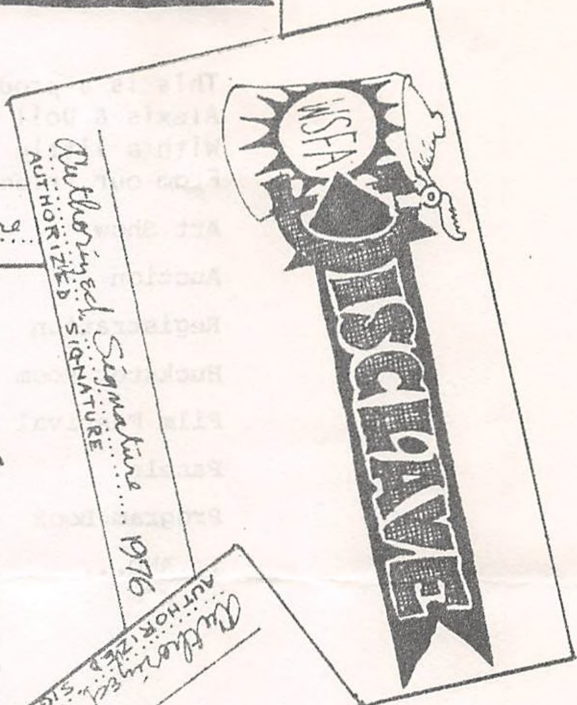 WSFA
DISCLAVE
Authorized Signature 1976
AUTHORIZED SIGNATURE
Authorized
AUTHORIZED SIG